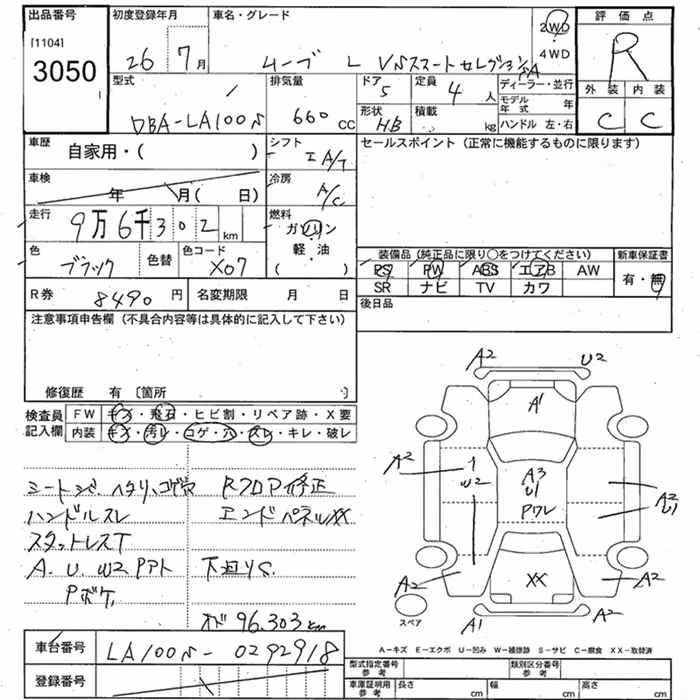 出品番号 初度登録年月 車名・グレード 2WD 評価点
[1104] 26 7月 ムーブ L VSスマートセレクションSA 4WD R
3050
型式 排気量 ドア 定員 ディーラー・並行 外装 内装
DBA-LA100S 660cc 5 4人 モデル年式 年 C C
形状 積載 ハンドル 左・右
HB kg
車歴 自家用・( ) シフト IA/T セールスポイント (正常に機能するものに限ります)
車検 年 月( 日) 冷房 A/C
走行 9万6千302km 燃料 ガソリン
軽・油
( )
色 ブラック 色替 色コード X07
装備品 (純正品に限り○をつけてください) 新車保証書
PS PW ABS エアB AW 有・無
SR ナビ TV カワ
R券 8490円 名変期限 月 日 後日品
注意事項申告欄 (不具合内容等は具体的に記入して下さい)
修復歴 有 〔箇所 〕
検査員記入欄 FW キズ・飛石・ヒビ割・リペア跡・X要
内装 キズ・汚レ・コゲ・穴・スレ・キレ・破レ
シートシミ ヘタリ、コゲ穴 Rフロア修正
ハンドルスレ エンドパネルXX
スタットレスT
A.U.W2 Pアト 下回りS.
Pボケ
オド 96,303km
A2 U2
A1
A2 1 A3 A2
W2 U1 U1
Pワレ
A2 XX A2
スペア A1 A2
A-キズ E-エクボ U-凹み W-補修跡 S-サビ C-腐食 XX-取替済
車台番号 LA100S-0292918
登録番号
型式指定番号 参考 類別区分番号 参考
車庫証明用 参考 長さ cm 幅 cm 高さ cm